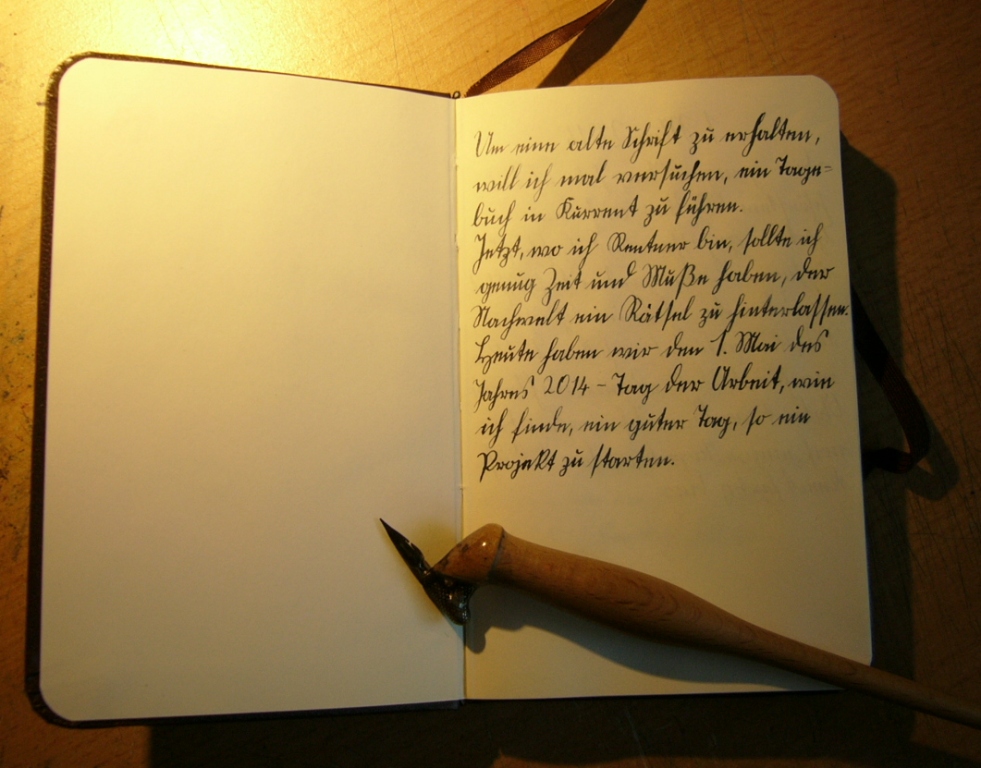 Um eine alte Schrift zu erhalten,
will ich mal versuchen, ein Tage=
buch in Kurrent zu führen.
Jetzt, wo ich Rentner bin, sollte ich
genug Zeit und Muße haben, der
Nachwelt ein Rätsel zu hinterlassen.
Heute haben wir den 1. Mai des
Jahres 2014 - Tag der Arbeit, wie
ich finde, ein guter Tag, so ein
Projekt zu starten.